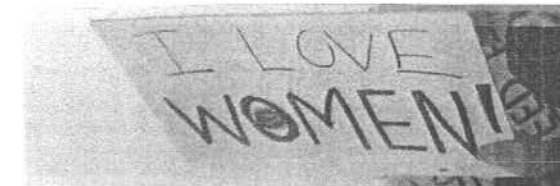 I LOVE
WOMEN!